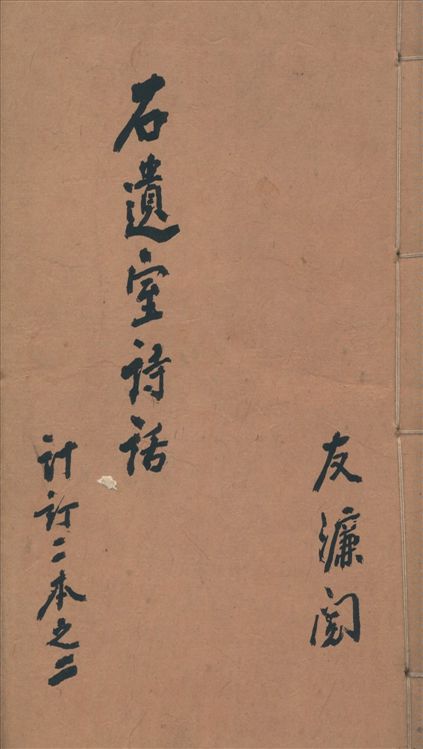 友濂
石遺室詩話
計訂二本之二